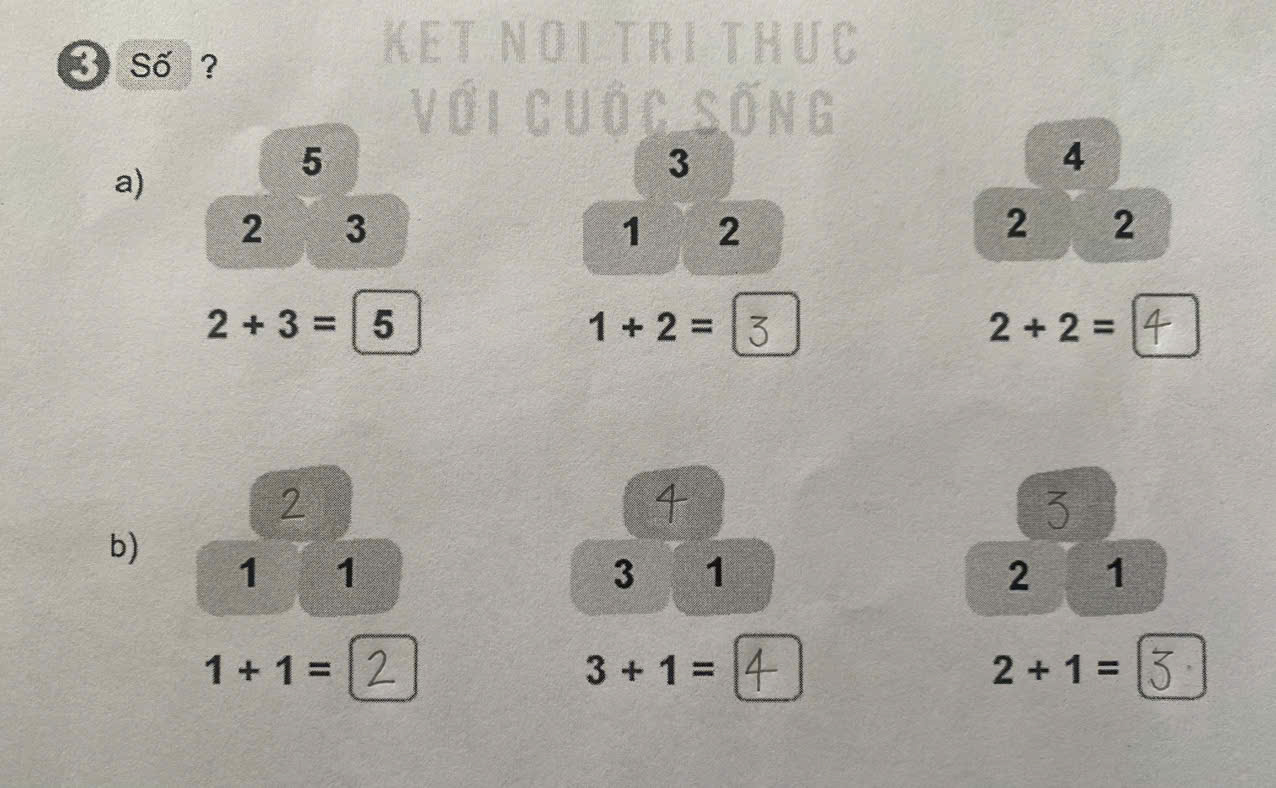 KẾT NỐI TRI THỨC
VỚI CUỘC SỐNG
3 Số ?
a)
5
2 3
2 + 3 = 5
3
1 2
1 + 2 = 3
4
2 2
2 + 2 = 4
b)
2
1 1
1 + 1 = 2
4
3 1
3 + 1 = 4
3
2 1
2 + 1 = 3